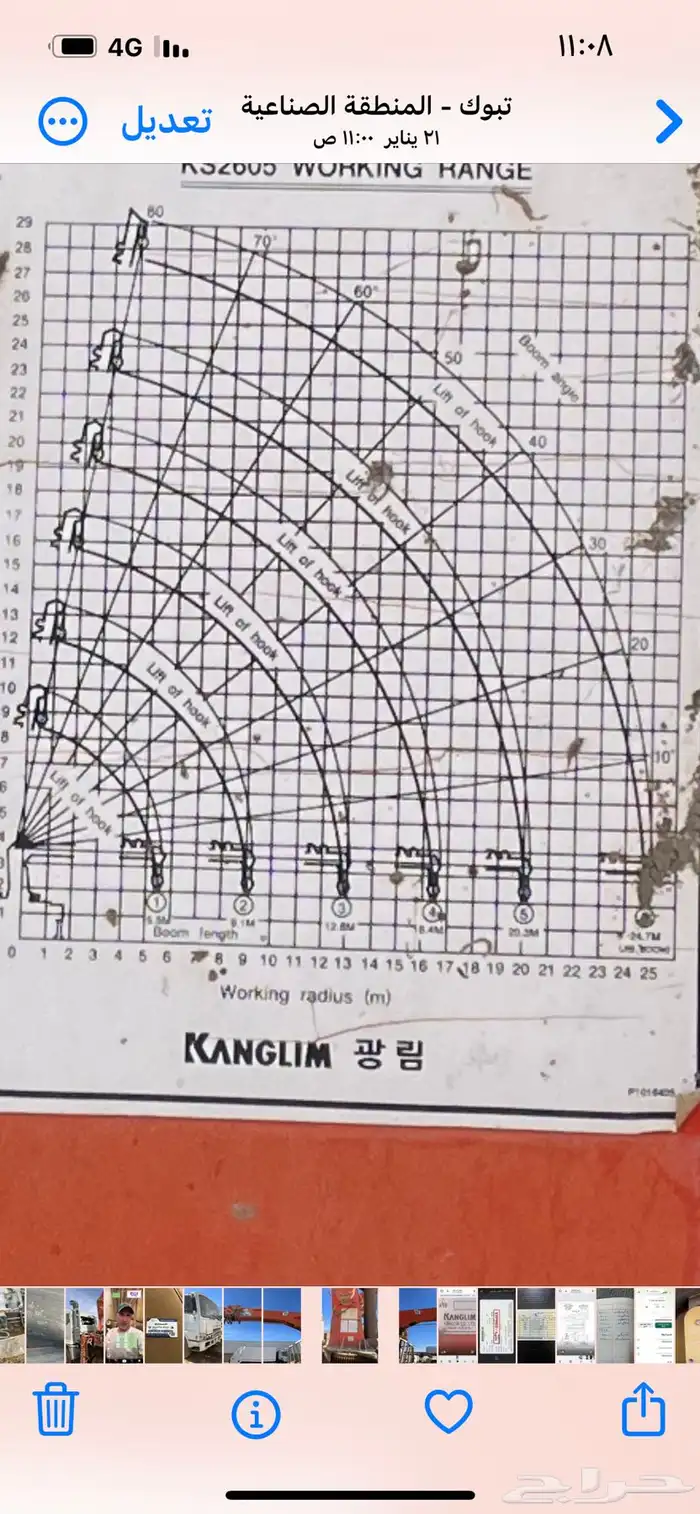 4G
١١:٠٨
تبوك - المنطقة الصناعية
٢١ يناير ١١:٠٠ ص
تعديل
KS2605 WORKING RANGE
29
28
27
26
25
24
23
22
21
20
19
18
17
16
15
14
13
12
11
10
9
8
7
6
5
4
3
2
1
80
70°
60°
50
40
30
20
10°
Boom angle
Lift of hook
Lift of hook
Lift of hook
Lift of hook
Lift of hook
Lift of hook
1
2
3
4
5
5.5M
9.1M
12.8M
20.3M
24.7M
Boom length
0 1 2 3 4 5 6 7 8 9 10 11 12 13 14 15 16 17 18 19 20 21 22 23 24 25
Working radius (m)
KANGLIM 광림
حراج